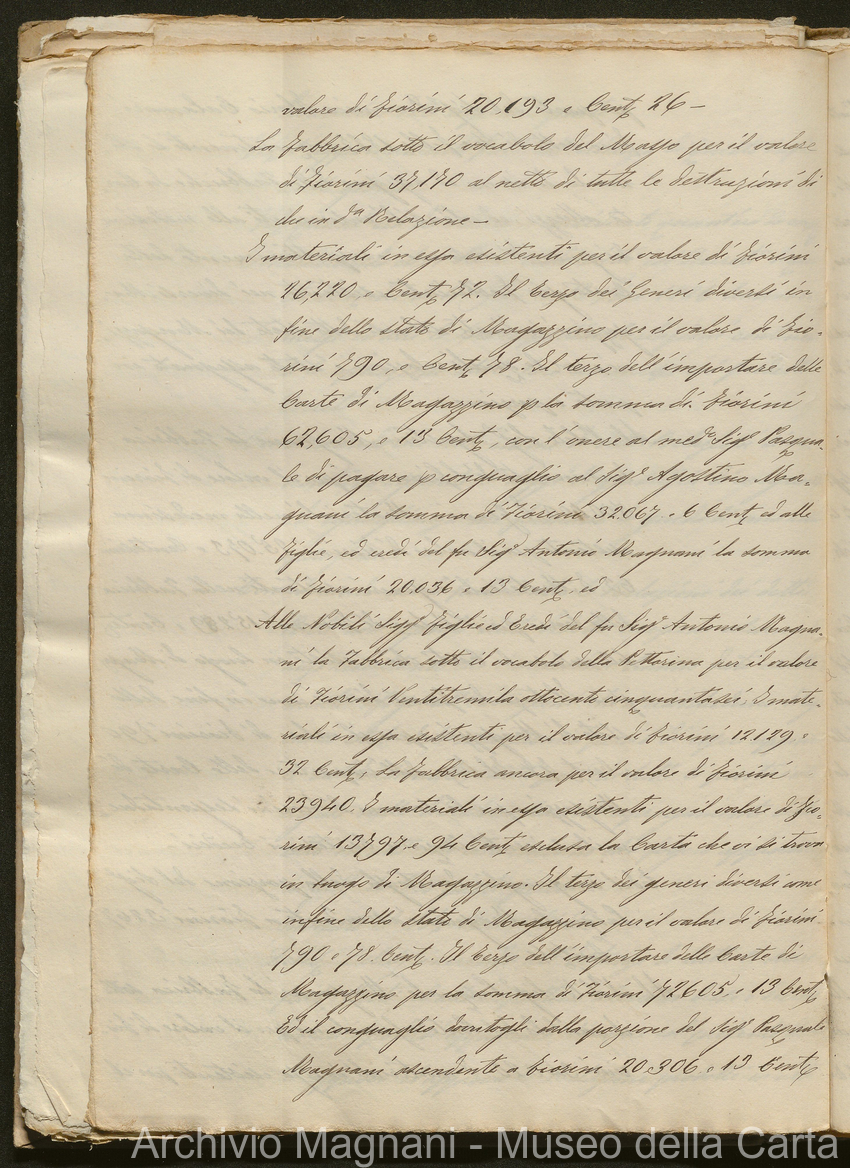 valore di Fiorini 20.193 e Cent. 26 –
La Fabbrica sotto il vocabolo del Masso per il valore
di Fiorini 37,170 al netto di tutte le destruzioni di
che in d.ᵃ Relazione –
I materiali in essa esistenti per il valore di Fiorini
26,220 e Cent. 72. Il terzo dei Generi diversi in
fine dello stato di Magazzino per il valore di Fio-
rini 790, e Cent. 78. Il terzo dell'importare delle
Carte di Magazzino p la somma di Fiorini
62,605, e 13 Cent., con l'onere al med.º Sig.ʳ Pasqua-
le di pagare p conguaglio al Sig.ʳ Agostino Ma-
gnani la somma di Fiorini 32.067 e 6 Cent. ed alle
Figlie, ed eredi del fu Sig.ʳ Antonio Magnani la somma
di Fiorini 20,036 e 13 Cent. ed
Alle Nobili Sigg. Figlie ed Eredi del fu Sig.ʳ Antonio Magna-
ni la Fabbrica sotto il vocabolo della Pettorina per il valore
di Fiorini Ventitremila ottocento cinquantasei, I mate-
riali in essa esistenti per il valore di Fiorini 12.129 e
32 Cent, La Fabbrica ancora per il valore di Fiorini
23940. I materiali in essa esistenti per il valore di Fio-
rini 13797 e 94 Cent. esclusa la Carta che vi si trova
in luogo di Magazzino. Il terzo dei generi diversi come
in fine dello stato di Magazzino per il valore di Fiorini
790 e 78. Cent. Il terzo dell'importare delle Carte di
Magazzino per la somma di Fiorini 72605 e 13 Cent.
Ed il conguaglio dovutogli dalla porzione del Sig.ʳ Pasquale
Magnani ascendente a Fiorini 20.306 e 13 Cent.
Archivio Magnani - Museo della Carta